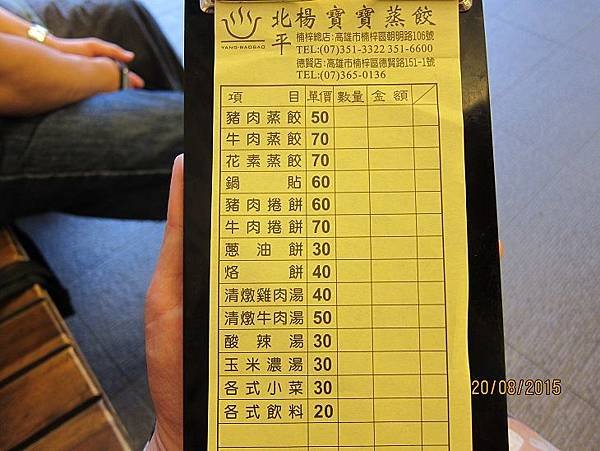 北平楊寶寶蒸餃
YANG-BAOBAO
楠梓總店:高雄市楠梓區朝明路106號
TEL:(07)351-3322 351-6600
德賢店:高雄市楠梓區德賢路151-1號
TEL:(07)365-0136
項目 單價 數量 金額
豬肉蒸餃 50
牛肉蒸餃 70
花素蒸餃 70
鍋貼 60
豬肉捲餅 60
牛肉捲餅 70
蔥油餅 30
烙餅 40
清燉雞肉湯 40
清燉牛肉湯 50
酸辣湯 30
玉米濃湯 30
各式小菜 30
各式飲料 20
20/08/2015